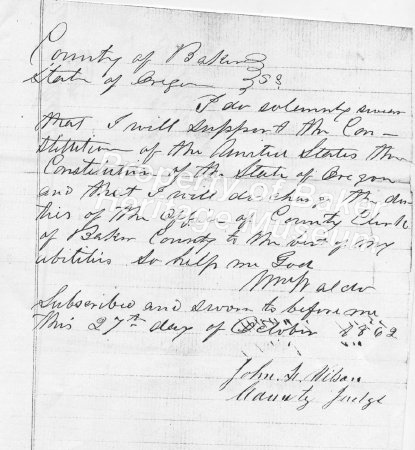 County of Baker
State of Oregon } SS
I do solemnly swear
that I will support the Con-
stitution of the United States the
Constitution of the State of Oregon
and that I will discharge the du-
ties of the office of County Clerk
of Baker County to the best of my
abilities So help me God
Subscribed and sworn to before me
this 27th day of October 1862
John H. Wilson
County Judge
Property of Baker